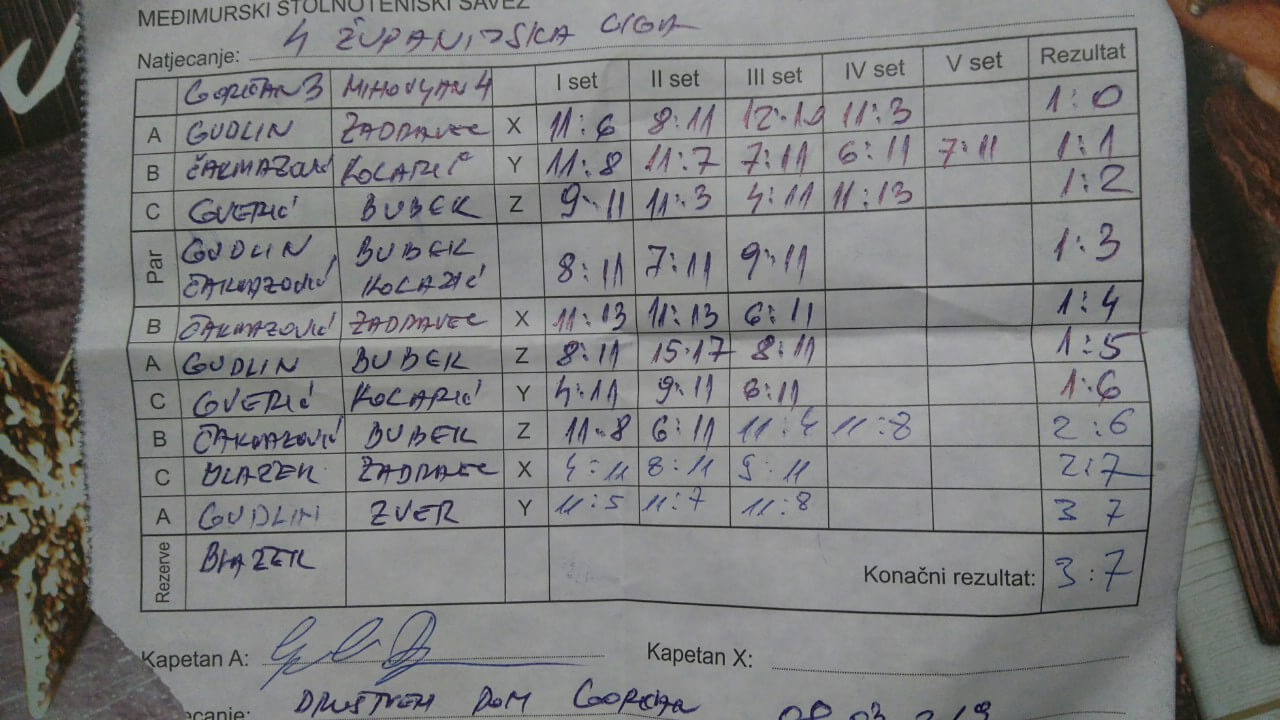 MEĐIMURSKI STOLNOTENISKI SAVEZ
Natjecanje: 4 ŽUPANIJSKA LIGA
GORIČAN 3 MIHOVLJAN 4 I set II set III set IV set V set Rezultat
A GUDLIN ZADRAVEC X 11:6 8:11 12:10 11:3 1:0
B ČAKMAZOVIĆ KOCARIĆ Y 11:8 11:7 7:11 6:11 7:11 1:1
C GVERIĆ BUBEK Z 9:11 11:3 4:11 11:13 1:2
Par GUDLIN BUBEK
ČAKMAZOVIĆ KOCARIĆ 8:11 7:11 9:11 1:3
B ČAKMAZOVIĆ ZADRAVEC X 11:13 11:13 6:11 1:4
A GUDLIN BUBEK Z 8:11 15:17 8:11 1:5
C GVERIĆ KOCARIĆ Y 4:11 9:11 8:11 1:6
B ČAKMAZOVIĆ BUBEK Z 11:8 6:11 11:4 11:8 2:6
C BLAZEK ZADRAVEC X 4:11 8:11 5:11 2:7
A GUDLIN ZVER Y 11:5 11:7 11:8 3 7
Rezerve BLAZEK Konačni rezultat: 3:7
Kapetan A: Kapetan X:
ecanje: DRUŠTVENI DOM GORIČAN